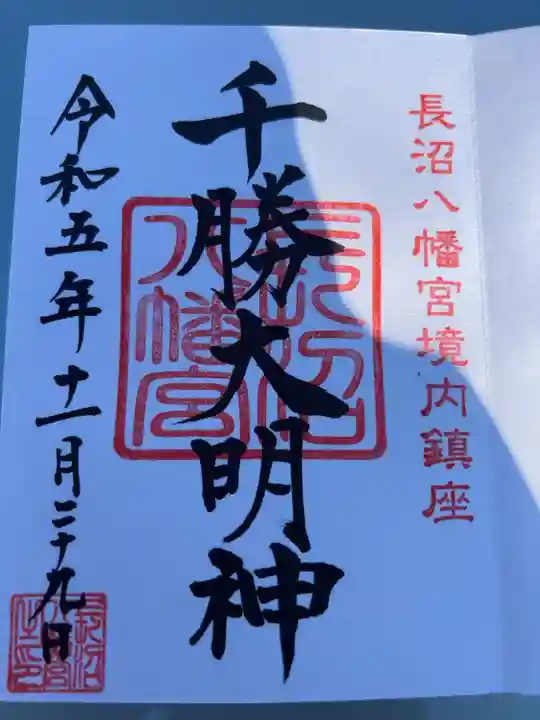 長沼八幡宮境内鎮座
千勝大明神
長沼八幡宮
令和五年十一月二十九日